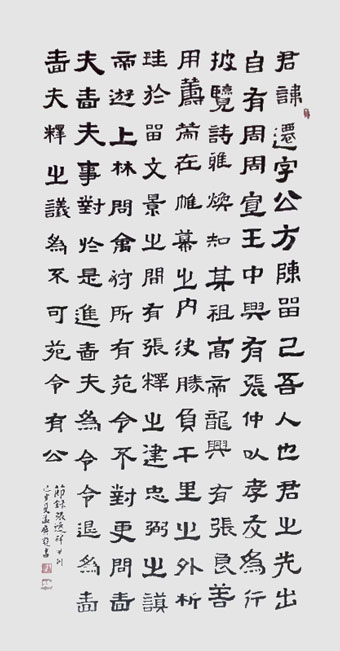 君諱遷字公方陳留己吾人也君之先出
自有周周宣王中興有張仲以孝友為行
披覽詩雅煥知其祖高帝龍興有張良善
用籌策在帷幕之內決勝負千里之外析
珪於留文景之間有張釋之建忠弼之謨
帝遊上林問禽狩所有苑令不對更問嗇
夫嗇夫事對於是進嗇夫為令令退為嗇
嗇夫釋之議為不可苑令有公
節錄張遷碑